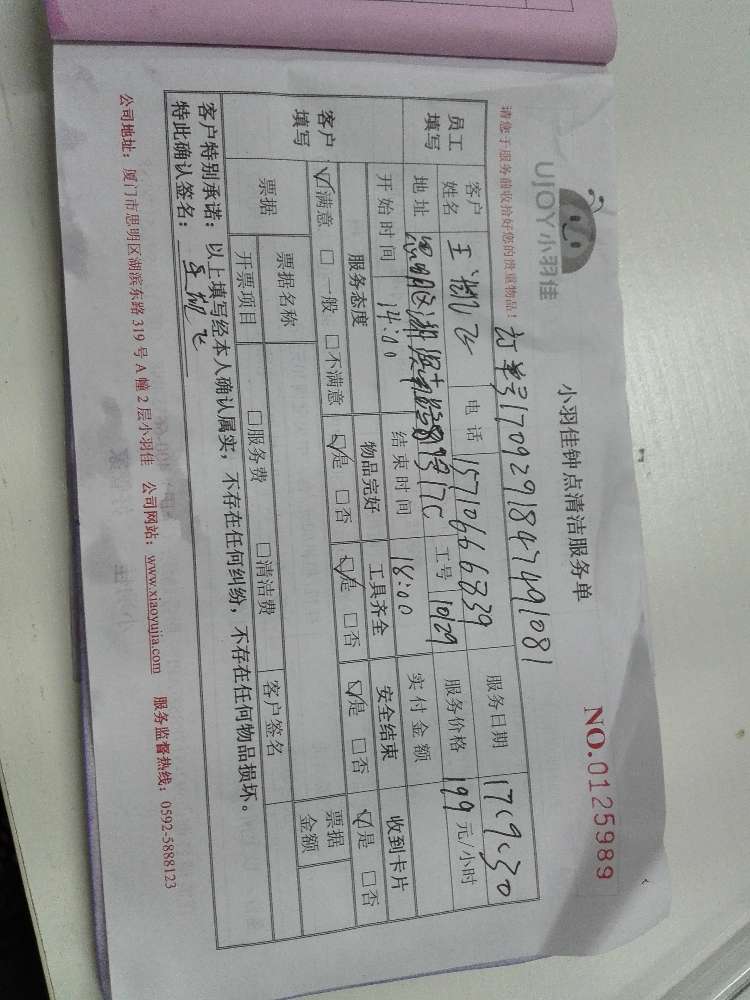 UJOY小羽佳
小羽佳钟点清洁服务单
NO.0125989
请您于服务前收拾好您的贵重物品!
订单号1709291847491081
员工填写
客户姓名
电话 15710666839
服务日期 17.9.30
地址
工号 1029
服务价格 199 元/小时
开始时间 14:00
结束时间 18:00
实付金额
客户填写
服务态度
物品完好
工具齐全
安全结束
收到卡片
☑满意 □一般 □不满意
☑是 □否
☑是 □否
☑是 □否
☑是 □否
票据
票据名称
客户签名
票据金额
开票项目
□服务费 □清洁费
客户特别承诺:以上填写经本人确认属实,不存在任何纠纷,不存在任何物品损坏。
特此确认签名:
公司地址:厦门市思明区湖滨东路319号A幢2层小羽佳 公司网站:www.xiaoyujia.com 服务监督热线:0592-5888123